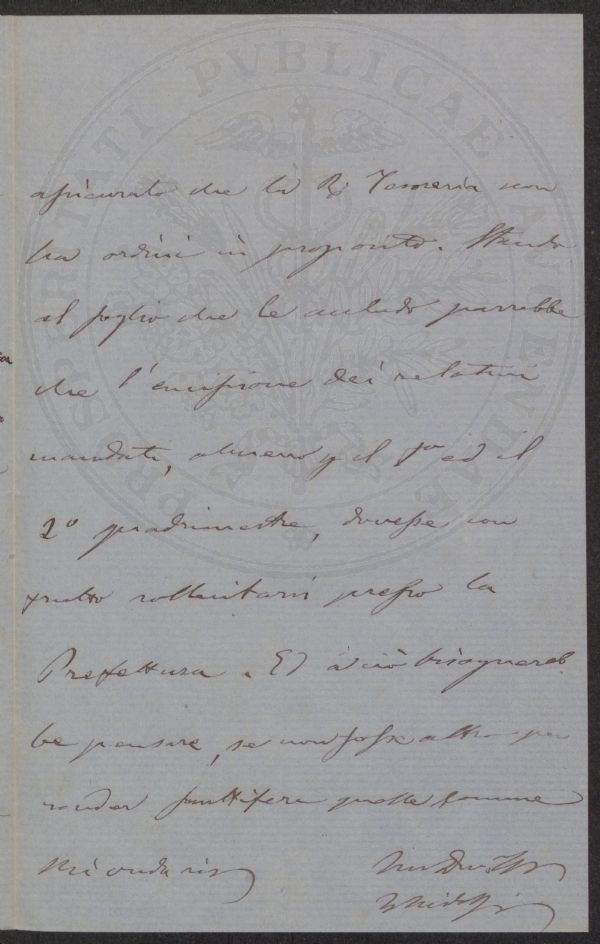 PROSPERITATI PVBLICAE AVGENDAE
assicurato che la R. Tesoreria non
ha ordini in proposito. Stando
al foglio che le accludo parrebbe
che l'emissione dei relativi
mandati, almeno p el 1º ed il
2º quadrimestre, dovesse con
frutto sollecitarsi presso la
Prefettura. Ed a ciò bisognereb
be pensare, se non fosse altro per
render fruttifere quelle somme
Mi onda